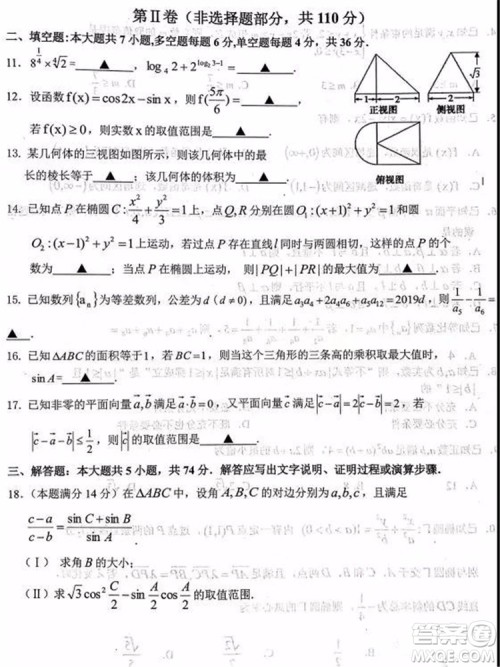 第Ⅱ卷（非选择题部分，共 110 分）
二、填空题:本大题共 7 小题,多空题每题 6 分,单空题每题 4 分，共 36 分.
11. 8^{1/4}×\sqrt[4]{2}= ▲ ， log_4 2+2^{log_2 3-1}= ▲
12. 设函数 f(x)=cos2x−sinx，则 f(5π/6)= ▲ ，
若 f(x)≥0，则实数 x 的取值范围是 ▲ .
1 2 √3 2
正视图 侧视图
俯视图
13. 某几何体的三视图如图所示，则该几何体中的最
长的棱长等于 ▲ ；该几何体的体积为 ▲ .
14. 已知点 P 在椭圆 C: x²/4+y²/3=1上，点 Q,R 分别在圆 O_1:(x+1)²+y²=1和圆
O_2:(x−1)²+y²=1上运动，若过点 P 存在直线 l 同时与两圆相切，这样的点 P 的个
数为 ▲ ；当点 P 在椭圆上运动，则 |PQ|+|PR| 的最大值为 ▲ .
15. 已知数列{a_n}为等差数列，公差为 d (d≠0)，且满足 a_3a_4+2a_4a_6+a_5a_12=2019d，则 1/a_5−1/a_6=
▲ .
16. 已知ΔABC的面积等于1，若BC=1，则当这个三角形的三条高的乘积取最大值时，
sin A= ▲ .
17. 已知非零的平面向量a,b满足a·b=0，又平面向量c满足|c−a|=2|c−b|=2，且
|c−a−b|≤1/2，则|c|的取值范围是 ▲ .
三、解答题：本大题共 5 小题，共 74 分．解答应写出文字说明、证明过程或演算步骤.
18.（本题满分 14 分）在ΔABC中，设角A,B,C的对边分别为a,b,c，且满足
(c−a)/(c−b)=(sin C+sin B)/sin A.
（Ⅰ）求角 B 的大小；
（Ⅱ）求 √3cos² C/2−sin A/2 cos A/2 的取值范围.